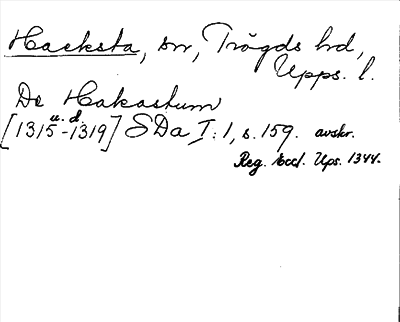 Hacksta, sn, Trögds hd,
Upps. l.
De Hakastum
[1315 u. d. -1319] SDa I:1, s. 159. avskr.
Reg. Eccl. Ups. 1344.